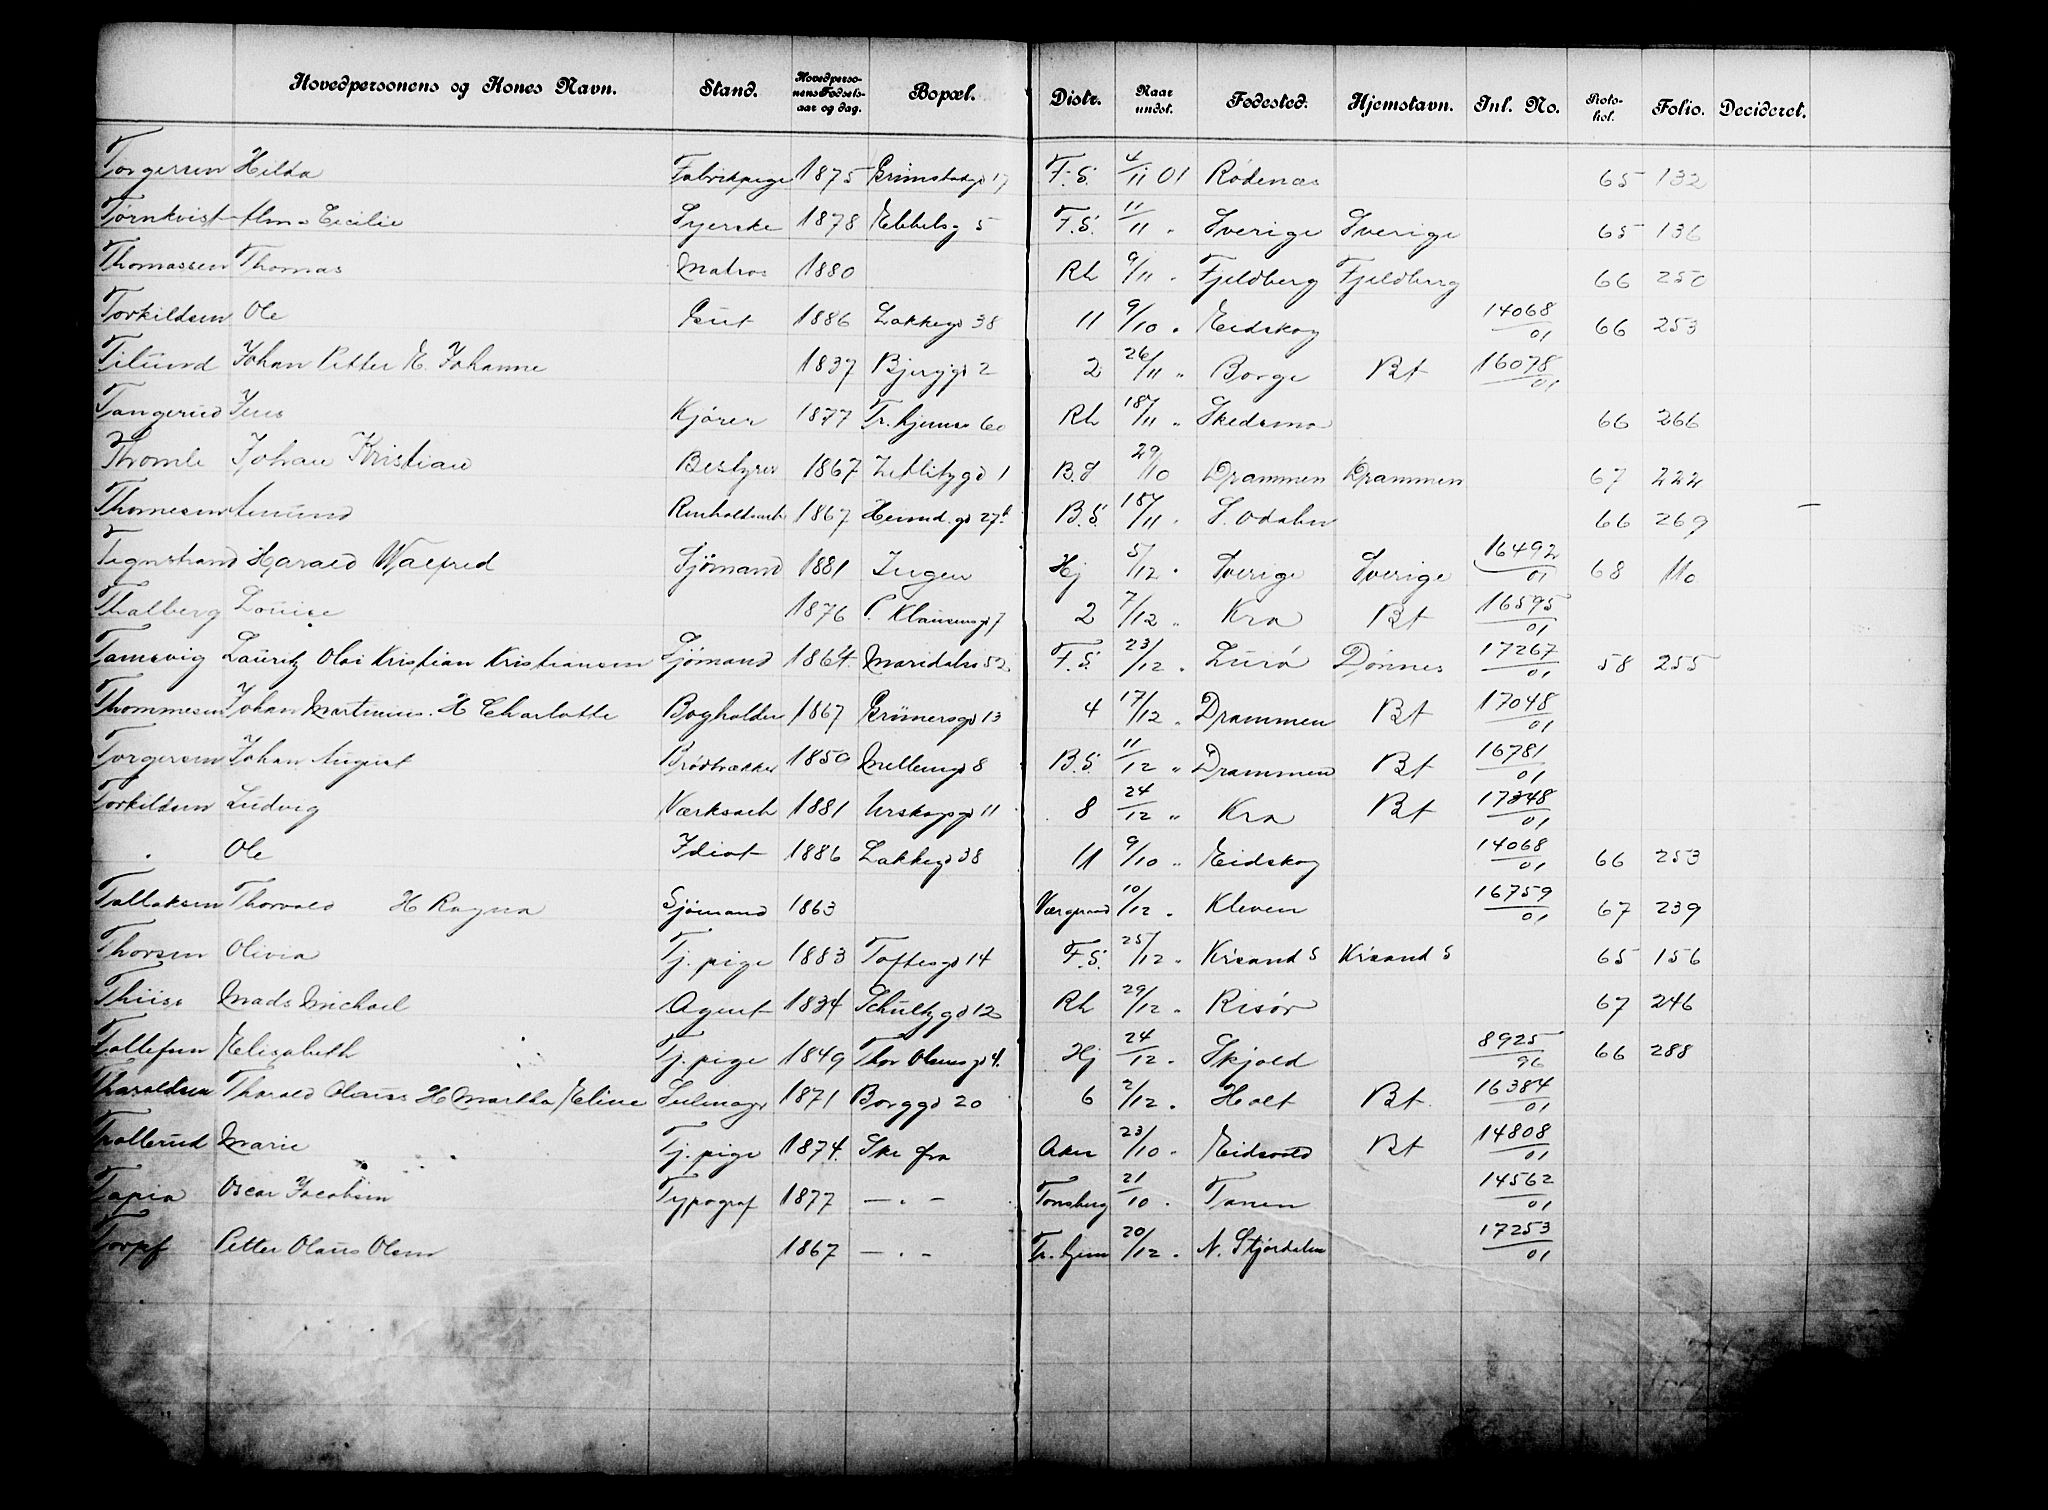 Hovedpersonens og Kones Navn. Stand. Hovedpersonens Fødselsaar og dag. Bopæl. Distr. Naar undst. Fødested. Hjemstavn. Inl. No. Protokol. Folio. Decideret.
Torgersen Hilda Fabrikpige 1875 Grimstadgd 17 F.S. 4/11 01 Rødenæs 65 132
Tørnkvist Alma Cecilie Syerske 1878 Ebbelsg 5 F.S. 11/11 " Sverige Sverige 65 136
Thomassen Thomas Matros 1880 Rh 9/11 " Fjeldberg Fjeldberg 66 250
Torkildsen Ole Gut 1886 Lakkegd 38 11 9/10 " Eidskog 14068/01 66 253
Tilund Johan Petter H. Johanne 1837 Bjerggd 2 2 26/11 " Borge Bt 16078/01
Tangerud Jens Kjører 1877 Tr.hjemsv 60 Rh 18/11 " Skedsmo 66 266
Thomle Johan Kristian Bestyrer 1867 Zetlitzgd 1 B.S 29/10 Drammen Drammen 67 222
Thomesen Amund Renholdsarb 1867 Heimd.gd 27b B.S. 18/11 " S. Odalen 66 269 —
Tegnstrand Harald Walfred Sjømand 1881 Ingen Hj 5/12 " Sverige Sverige 16492/01 68 110
Thalberg Louise 1876 P. Klausensgd 7 2 7/12 " Kra Bt 16595/01
Tamsvig Lauritz Olai Kristian Kristiansen Sjømand 1864 Maridalsv 52 F.S. 23/12 " Lurø Dønnes 17267/01 58 255
Thommesen Johan Martinius. H Charlotte Bogholder 1867 Grünersgd 13 4 17/12 " Drammen Bt 17048/01
Torgersen Johan August Brødtrækker 1850 Mellemgd 8 B.S. 11/12 " Drammen Bt 16781/01
Torkildsen Ludvig Værksarb 1881 Urskogsgd 11 8 24/12 " Kra Bt 17348/01
" Ole Idiot 1886 Lakkegd 38 11 9/10 " Eidskog 14068/01 66 253
Tallaksen Thorvald H Ragna Sjømand 1863 10/12 " Kleven 16759/01 67 239
Thorsen Olivia Tj. pige 1883 Toftesgd 14 F.S. 25/12 " Krsand S Krsand S 65 156
Thiis Mads Michael Agent 1834 Schultzgd 12 Rh 29/12 " Risør 67 246
Tollefsen Elisabeth Tj. pige 1849 Thor Olsensgd 4. Hj 24/12 " Skjold 8925/96 66 288
Tharaldsen Tharald Olaus H Martha Eline Seilmagr 1871 Borggd 20 6 2/12 " Holt Bt. 16384/01
Trollerud Marie Tj. pige 1874. Ske fra Aker 23/10 " Eidsvold Bt 14808/01
Tapia Oscar Jacobsen Typograf 1877 — " — Tønsberg 21/10 " Tanen 14562/01
Torpf Petter Olaus Olsen 1867 — " — Tr.hjem 20/12 " N. Stjørdalen 17253/01